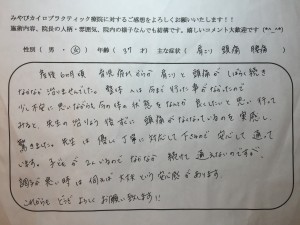 みやびカイロプラクティック療院に対するご感想をよろしくお願いいたします!!
施術内容、院長の人柄・雰囲気、院内の様子なんでも結構です。嬉しいコメント大歓迎です (*^_^*)
性別 ( 男 ・ 女 ) 年齢 ( 37 才) 主な症状 ( 肩こり 頭痛 腰痛 )
産後6ヵ月頃 育児疲れからか 肩こりと頭痛がしばらく続き
なかなか治りませんでした。整体へは 今まで行った事がなかったので
少し不安に思いながらも 今の状態をなんとか良くしたいと思い 行って
みると、先生の治りょう後すぐに 頭痛がなくなっているのを実感し
驚きました。先生は 優しく丁寧に対応して下さるので 安心して通って
います。子どもが2人いるので なかなか 続けて通えないのですが、
調子が悪い時は 伺えば大丈夫という安心感があります。
これからも どうぞ よろしくお願い致します!!